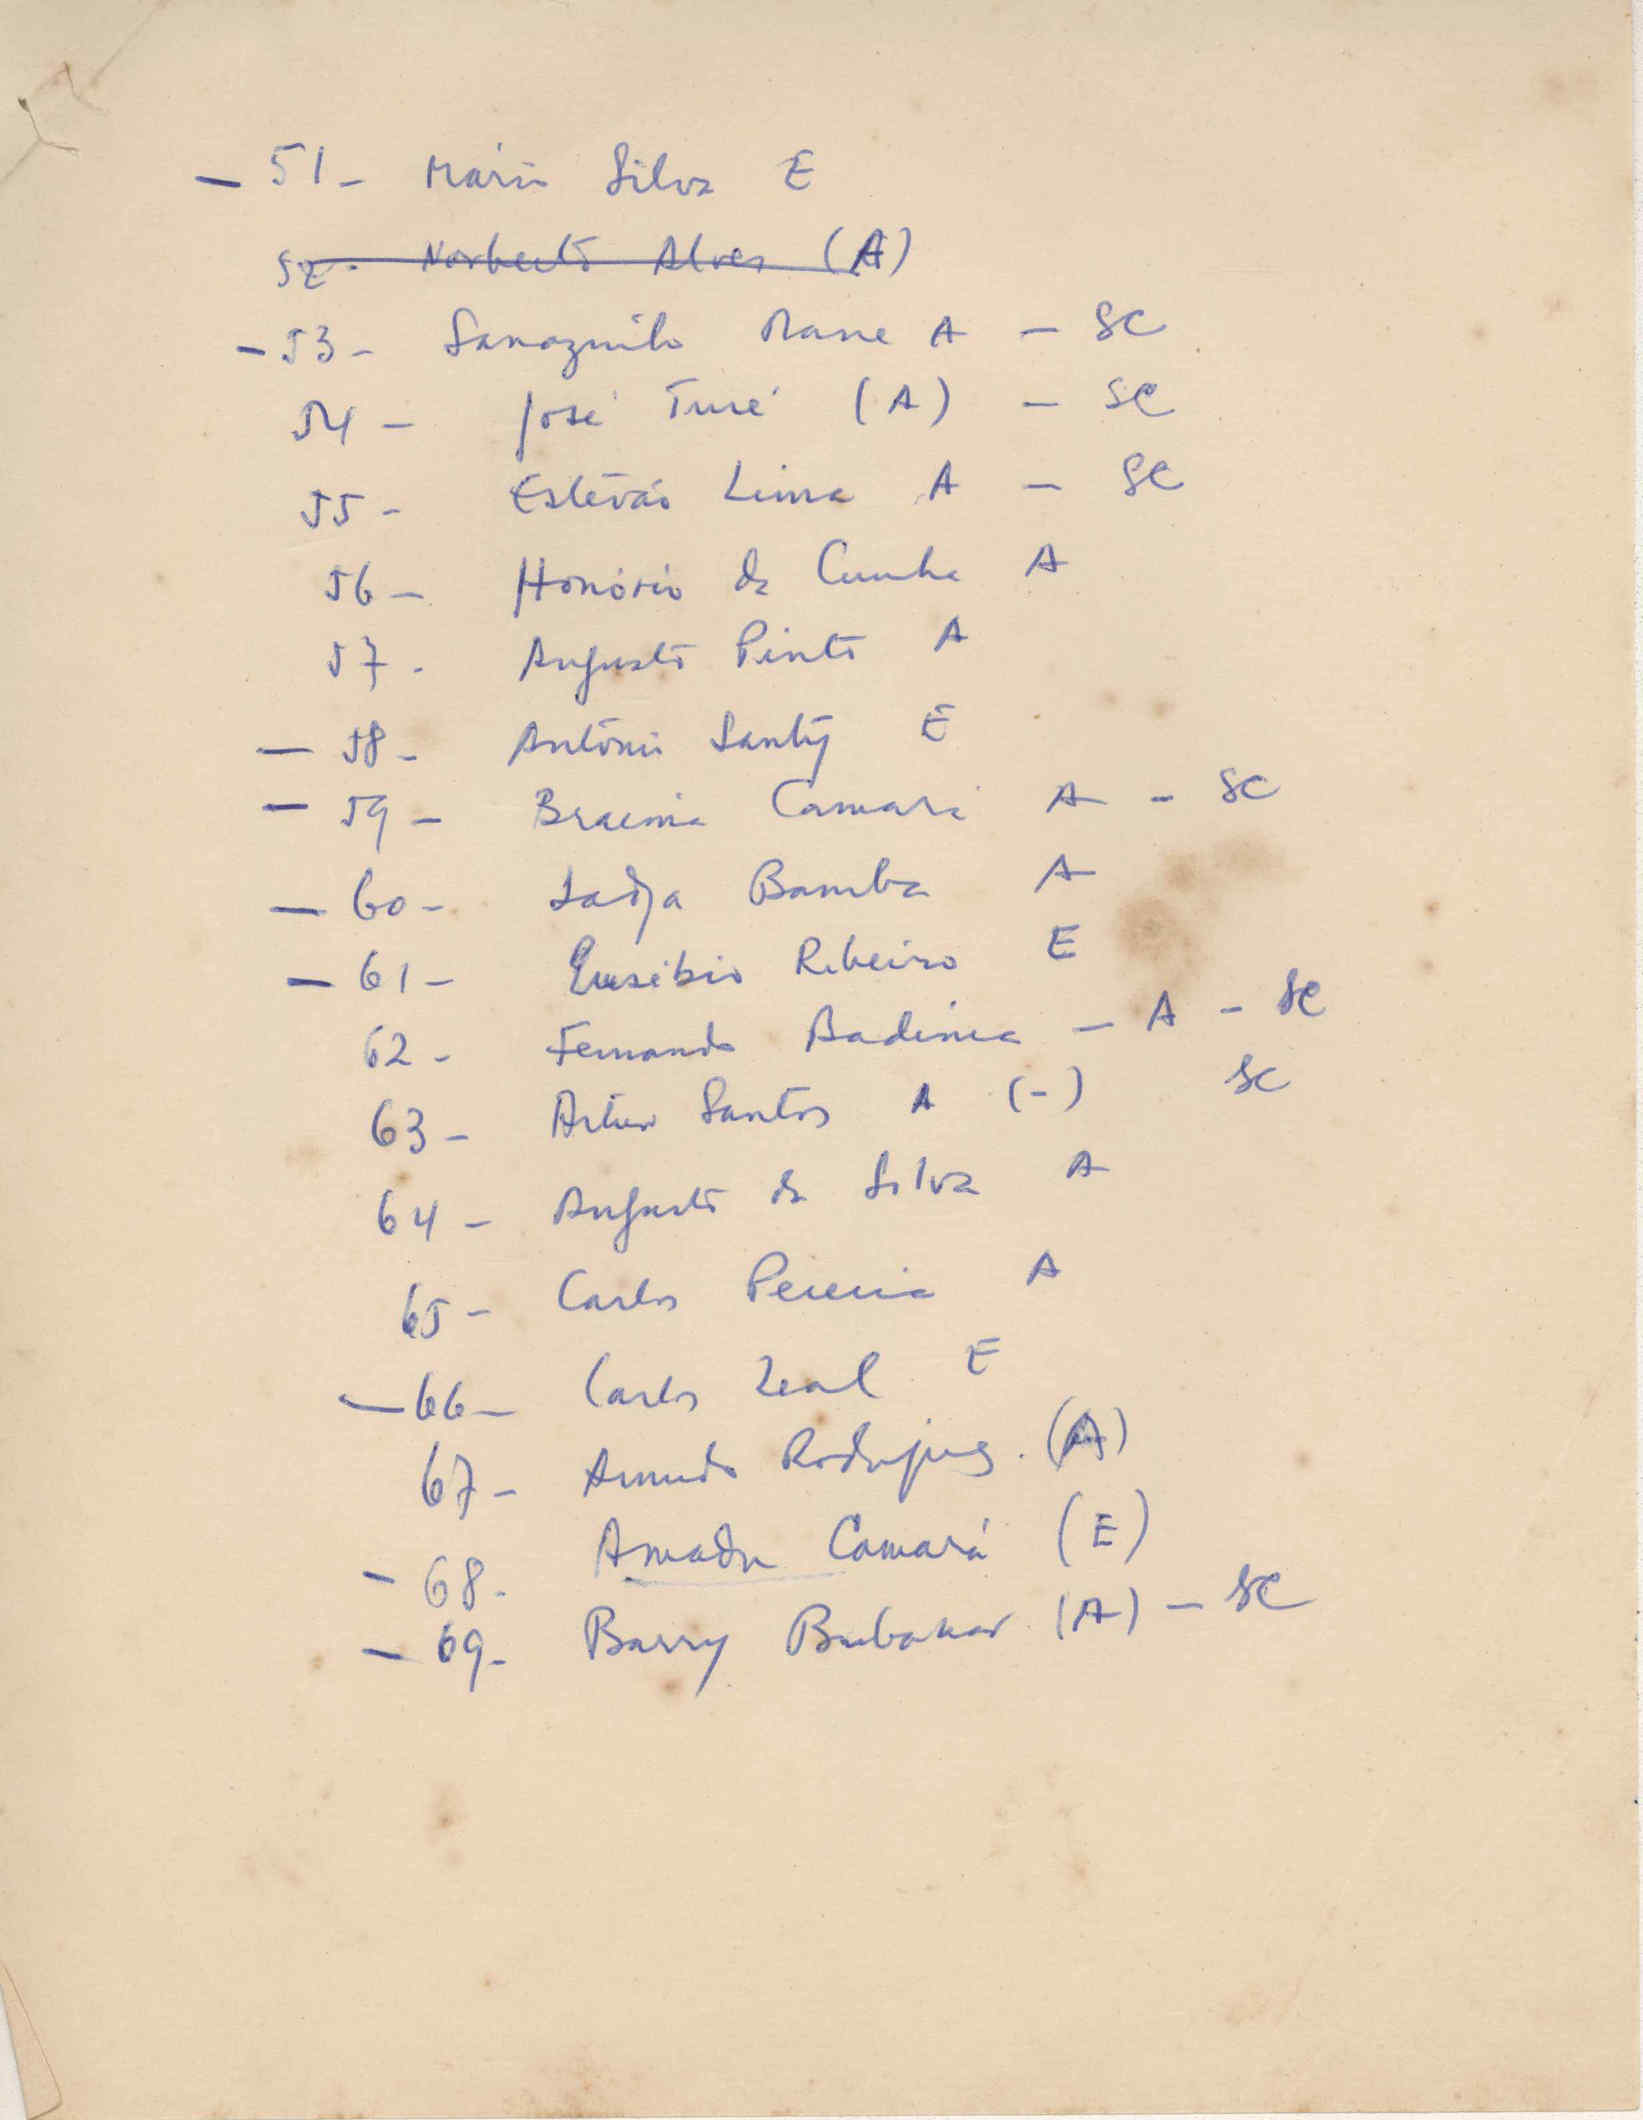 - 51 - Mário Silva E
52 - Norberto Alves (A)
- 53 - Mane A - SC
54 - José Turé (A) - SC
55 - Estêvão Lima A - SC
56 - Honório da Cunha A
57 - Augusto Pinto A
- 58 - António Santy E
- 59 - Braima Camará A - SC
- 60 - Ladja Bamba A
- 61 - Eusébio Ribeiro E
62 - Fernando Badinca - A - SC
63 - Artur Santos A (-) SC
64 - Augusto da Silva A
65 - Carlos Pereira A
- 66 - Carlos Leal E
67 - Armando Rodrigues. (A)
- 68 - Amadu Camará (E)
- 69 - Barry Bubakar (A) - SC